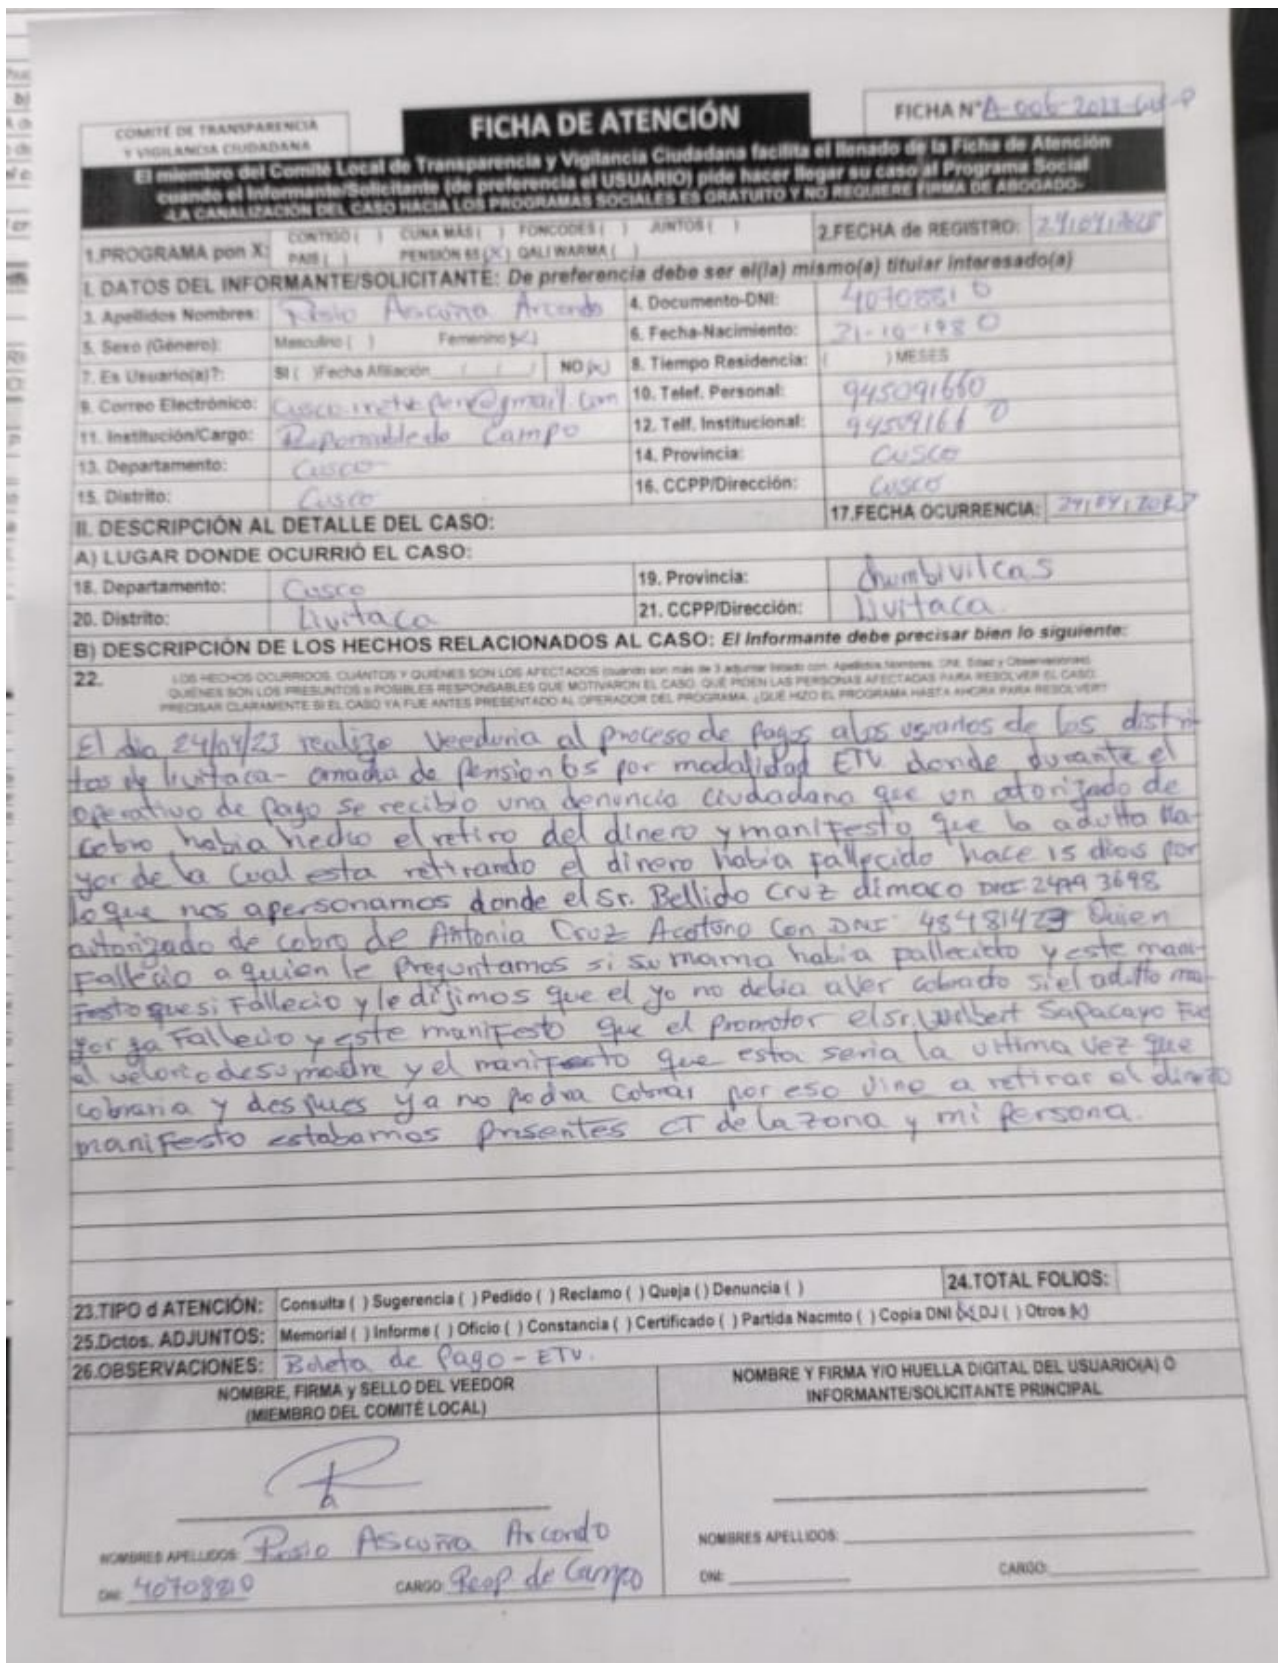 COMITÉ DE TRANSPARENCIA
Y VIGILANCIA CIUDADANA
FICHA DE ATENCIÓN
FICHA N° A-006-2023-
El miembro del Comité Local de Transparencia y Vigilancia Ciudadana facilita el llenado de la Ficha de Atención
cuando el Informante/Solicitante (de preferencia el USUARIO) pide hacer llegar su caso al Programa Social
-LA CANALIZACIÓN DEL CASO HACIA LOS PROGRAMAS SOCIALES ES GRATUITO Y NO REQUIERE FIRMA DE ABOGADO-
1.PROGRAMA pon X:
CONTIGO ( ) CUNA MÁS ( ) FONCODES ( ) JUNTOS ( )
PAIS ( ) PENSIÓN 65 (X) QALI WARMA ( )
2.FECHA de REGISTRO: 24/04/2023
I. DATOS DEL INFORMANTE/SOLICITANTE: De preferencia debe ser el(la) mismo(a) titular interesado(a)
3. Apellidos Nombres: Rosio Ascuña Arcondo 4. Documento-DNI: 40708810
5. Sexo (Género): Masculino ( ) Femenino (X) 6. Fecha-Nacimiento: 21-10-1980
7. Es Usuario(a)?: SI ( )Fecha Afiliación / / NO (x) 8. Tiempo Residencia: ( ) MESES
9. Correo Electrónico: @gmail.com 10. Telef. Personal: 945091660
11. Institución/Cargo: Responsable de Campo 12. Telf. Institucional: 945091660
13. Departamento: Cusco 14. Provincia: Cusco
15. Distrito: Cusco 16. CCPP/Dirección: Cusco
II. DESCRIPCIÓN AL DETALLE DEL CASO: 17.FECHA OCURRENCIA: 24/04/2023
A) LUGAR DONDE OCURRIÓ EL CASO:
18. Departamento: Cusco 19. Provincia: Chumbivilcas
20. Distrito: Livitaca 21. CCPP/Dirección: Livitaca.
B) DESCRIPCIÓN DE LOS HECHOS RELACIONADOS AL CASO: El Informante debe precisar bien lo siguiente:
22. LOS HECHOS OCURRIDOS, CUÁNTOS Y QUIÉNES SON LOS AFECTADOS (cuando son más de 3 adjuntar listado con: Apellidos Nombres, DNI, Edad y Observaciones).
QUIÉNES SON LOS PRESUNTOS o POSIBLES RESPONSABLES QUE MOTIVARON EL CASO. QUÉ PIDEN LAS PERSONAS AFECTADAS PARA RESOLVER EL CASO.
PRECISAR CLARAMENTE SI EL CASO YA FUE ANTES PRESENTADO AL OPERADOR DEL PROGRAMA. ¿QUÉ HIZO EL PROGRAMA HASTA AHORA PARA RESOLVER?
El dia 24/04/23 realize Veeduria al proceso de pagos a los usuarios de los distri-
tos de livitaca- omacha de pension 65 por modalidad ETV donde durante el
operativo de pago se recibio una denuncia ciudadana que un atorizado de
Cobro habia hecho el retiro del dinero y manifesto que la adulta Ma-
yor de la cual esta retirando el dinero habia fallecido hace 15 dias por
lo que nos apersonamos donde el Sr. Bellido Cruz dimaco DNI
autorizado de cobro de Antonia Cruz Con DNI Quien
Fallecio a quien le Preguntamos si su mama habia fallecido y este mani-
festo que si Fallecio y le dijimos que el yo no debia aver cobrado si el adulto ma-
yor ya Fallecio y este manifesto que el promotor el sr. Wilbert Sapacayo Fue
al velorio de su madre y el manifesto que esta seria la ultima vez que
cobraria y despues ya no podra Cobrar por eso vino a retirar el dinero
manifesto estabamos presentes CT de la zona y mi persona.
23.TIPO d ATENCIÓN: Consulta ( ) Sugerencia ( ) Pedido ( ) Reclamo ( ) Queja ( ) Denuncia ( ) 24.TOTAL FOLIOS:
25.Dctos. ADJUNTOS: Memorial ( ) Informe ( ) Oficio ( ) Constancia ( ) Certificado ( ) Partida Nacmto ( ) Copia DNI (x) DJ ( ) Otros (x)
26.OBSERVACIONES: Boleta de Pago - ETV.
NOMBRE, FIRMA y SELLO DEL VEEDOR
(MIEMBRO DEL COMITÉ LOCAL)
NOMBRE Y FIRMA Y/O HUELLA DIGITAL DEL USUARIO(A) O
INFORMANTE/SOLICITANTE PRINCIPAL
NOMBRES APELLIDOS: Rosio Ascuña Arcondo
DNI: 40708810 CARGO: Resp de Campo
NOMBRES APELLIDOS:
DNI: CARGO: